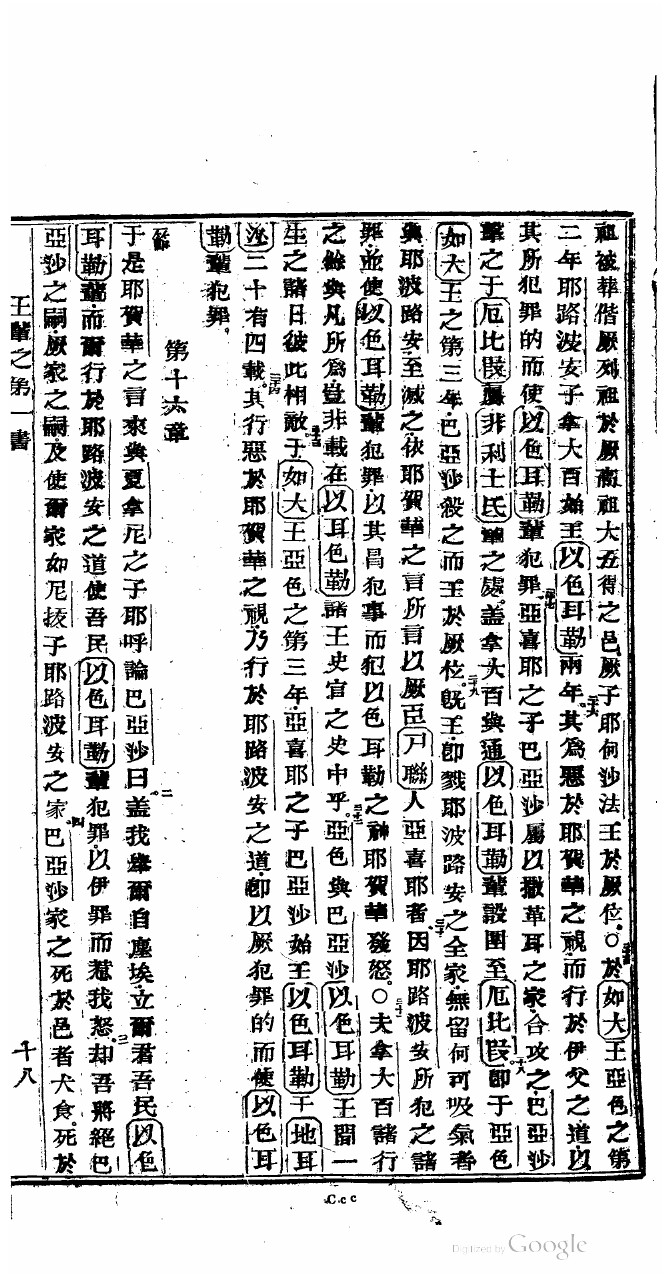 祖被葬偕厥列祖於厥祖大五得之邑厥子耶何沙法王於厥位○於如大王亞色之第
二年耶路波安子拿大百始王以色耳勒兩年其為惡於耶賀華之視而行於伊父之道以
其所犯罪的而使以色耳勒輩犯罪亞喜耶之子巴亞沙屬以撒革耳之家合攻之巴亞沙
擊之于厄比㕅屬非利士氏輩之處蓋拿大百與通以色耳勒輩設圍至厄比㕅即于亞色
如大王之第三年巴亞沙殺之而王於厥位既王即戮耶波路安之全家無留何可吸氣者
與耶波路安至滅之依耶賀華之言所言以厥臣聯人亞喜耶者因耶路波安所犯之諸
罪並使以色耳勒輩犯罪以其昌犯事而犯以色耳勒之神耶賀華發怒○夫拿大百諸行
之餘與凡所為豈非載在以耳色勒諸王史官之史中乎亞色與巴亞沙以色耳勒王間一
生之諸日彼此相敵于如大王亞色之第三年亞喜耶之子巴亞沙始王以色耳勒于地耳
二十有四載其行惡於耶賀華之視乃行於耶路波安之道即以厥犯罪的而使以色耳
勒輩犯罪
第十六章
于是耶賀華之言來與夏拿尼之子耶呼論巴亞沙曰蓋我舉爾自塵埃立爾君吾民以色
耳勒輩而爾行於耶路波安之道使吾民以色耳勒輩犯罪以伊罪而惹我怒却吾將絕巴
亞沙之嗣厥家之嗣及使爾家如尼拔子耶路波安之家巴亞沙家之死於邑者犬食死於
王輩之第一書
十八
Ccc
Digitized by Google